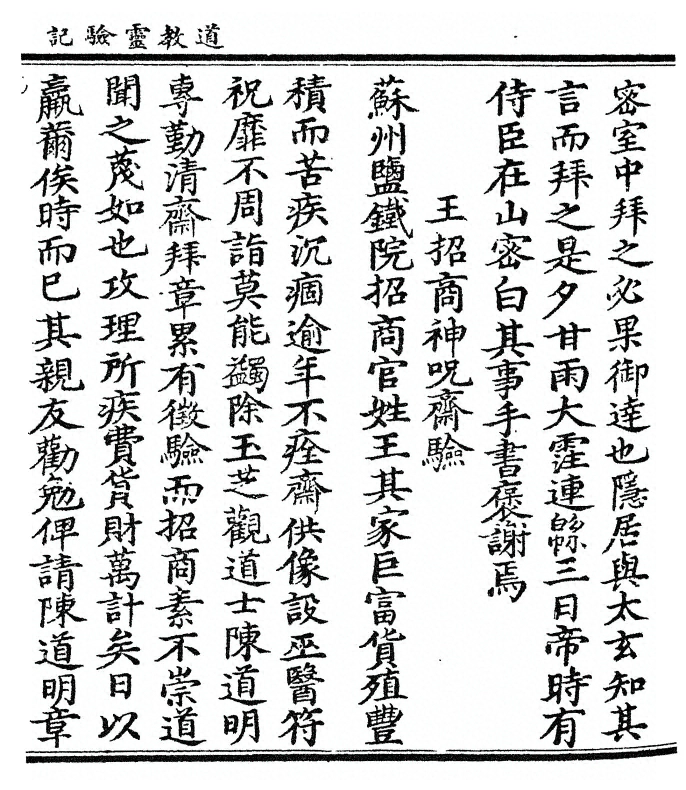 道教靈驗記
密室中拜之必果御達也隱居與太玄知其
言而拜之是夕甘雨大霔連緜三日帝時有
侍臣在山密白其事手書褒謝焉
王招商神呪齋驗
蘇州鹽鐵院招商官姓王其家巨富貨殖豐
積而苦疾沉痼逾年不痊齋供像設巫醫符
祝靡不周詣莫能蠲除玉芝觀道士陳道明
專勤清齋拜章累有徵驗而招商素不崇道
聞之蔑如也攻理所疾費貨財萬計矣日以
羸薾俟時而已其親友勸勉俾請陳道明章